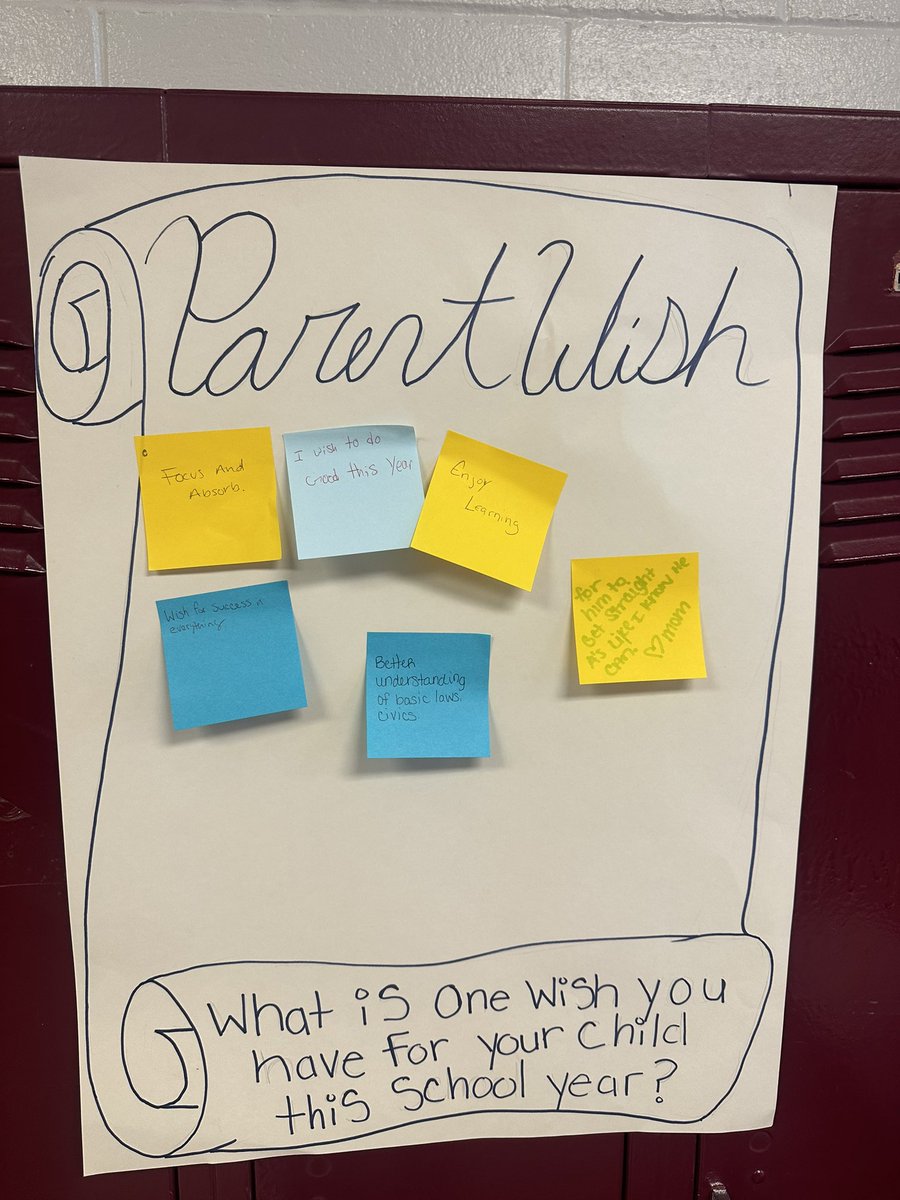 Parent Wish
Focus And
Absorb.
I wish to do
Good this year
Enjoy
Learning
Wish for success in
everything
Better
understanding
of basic laws.
civics.
for
him to
Get straight
A's Like I know He
can.
♡ mom
What is one wish you
have for your child
this school year?